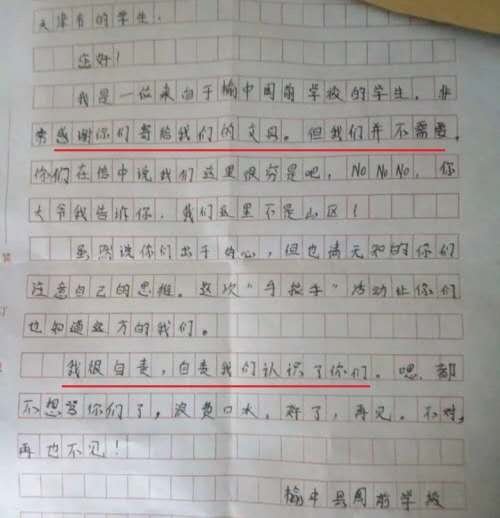 天津市的学生:
您好!
我是一位来自于榆中周前学校的学生,非
常感谢你们寄给我们的文具。但我们并不需要,
你们在信中说我们这里很穷是吧,NoNoNo,你
大爷我告诉你,我们这里不是山区!
虽然说你们出于好心,但也请无知的你们
注意自己的思维。这次"手拉手"活动让你们
也知道远方的我们。
我很自责,自责我们认识了你们。嗯,都
不想骂你们了,浪费口水。好了,再见。不对,
再也不见!
榆中县周前学校